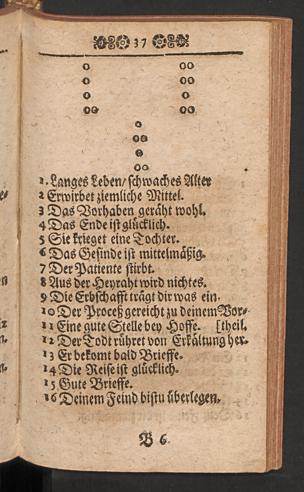 37
1. Langes Leben/ schwaches Alter
2 Erwirbet ziemliche Mittel.
3 Das Vorhaben geräht wohl.
4 Das Ende ist glücklich.
5 Sie krieget eine Tochter.
6 Das Gesinde ist mittelmäßig.
7 Der Patiente stirbt.
8 Aus der Heyraht wird nichtes.
9 Die Erbschafft trägt dir was ein.
10 Der Proceß gereicht zu deinem Vor-
11 Eine gute Stelle bey Hoffe. [theil.
12 Der Todt rühret von Erkältung her.
13 Er bekomt bald Brieffe.
14 Die Reise ist glücklich.
15 Gute Brieffe.
16 Deinem Feind bistu überlegen.
B 6